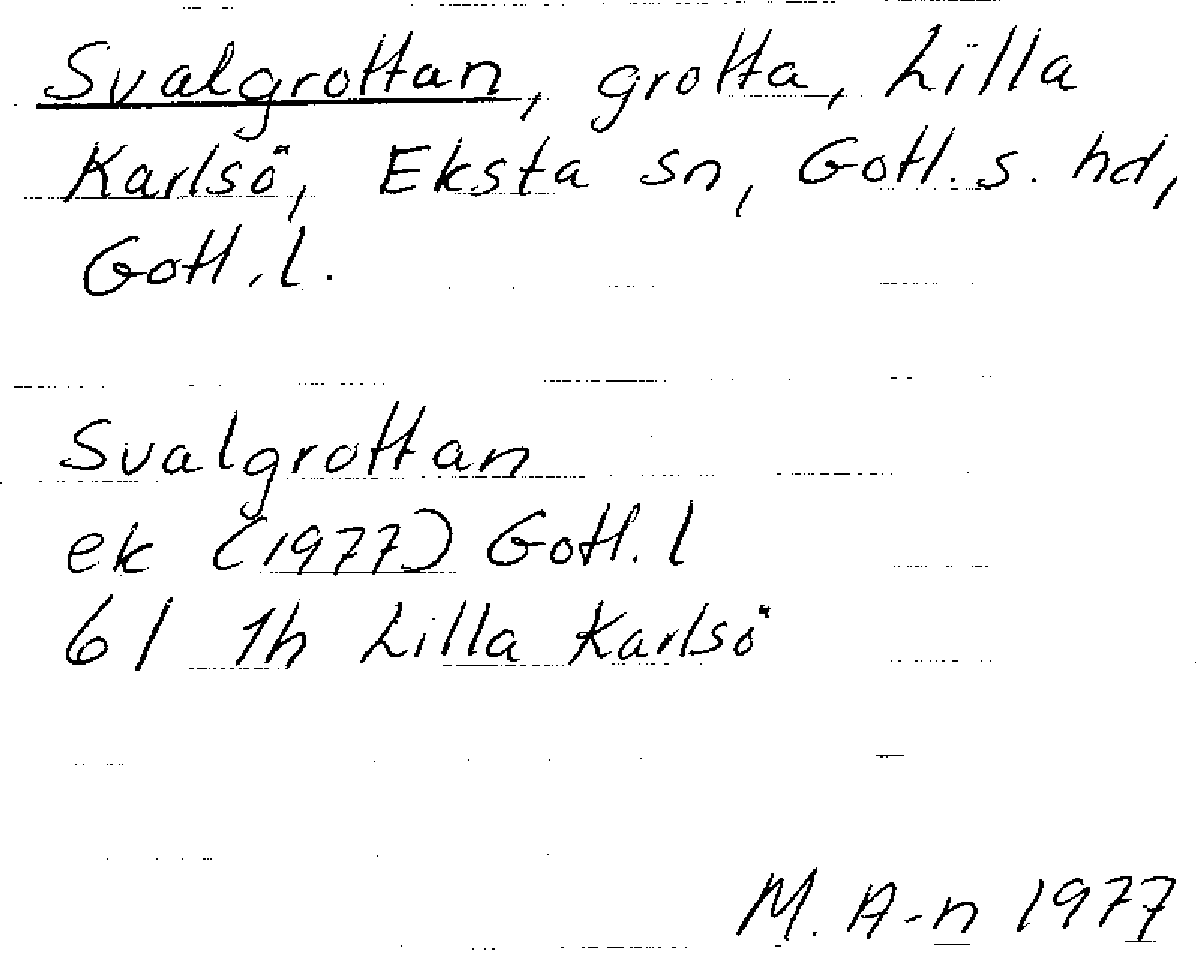 Svalgrottan, grotta, Lilla
Karlsö, Eksta sn, Gotl. s. hd,
Gotl. l.
Svalgrottan
ek (1977) Gotl. l
61 1h Lilla Karlsö
M. A-n 1977